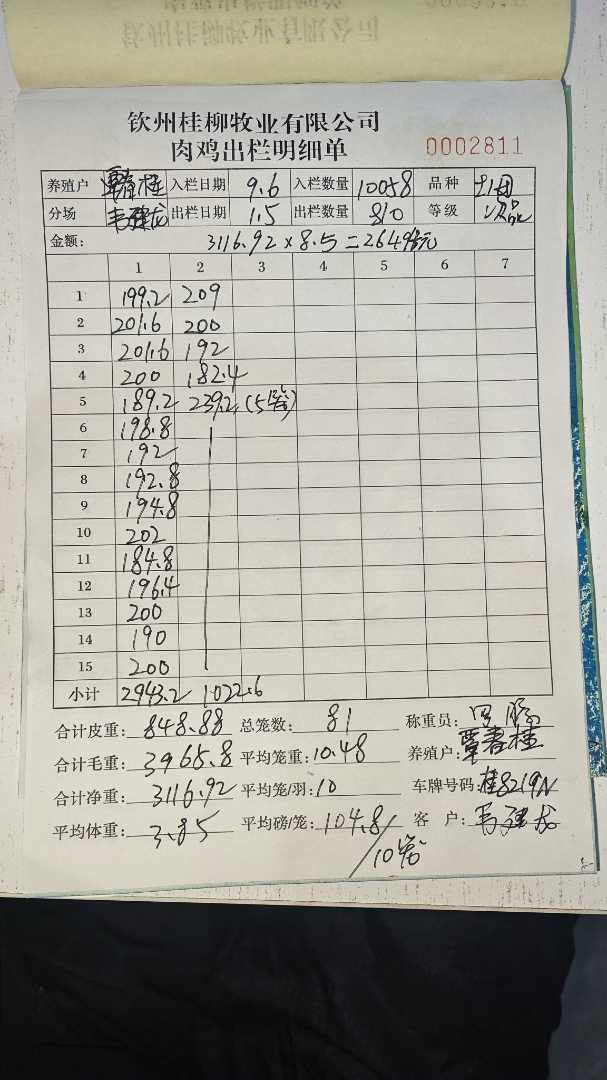 钦州桂柳牧业有限公司
肉鸡出栏明细单 0002811
养殖户 覃春桂 入栏日期 9.6 入栏数量 10058 品种
分场 韦建龙 出栏日期 1.5 出栏数量 810 等级 次品
金额: 3116.92 x 8.5 = 26494元
1 2 3 4 5 6 7
1 199.2 209
2 201.6 200
3 201.6 192
4 200 182.4
5 189.2 239.2 (5笼)
6 198.8
7 192
8 192.8
9 194.8
10 202
11 184.8
12 196.4
13 200
14 190
15 200
小计 2943.2 1022.6
合计皮重: 848.88 总笼数: 81 称重员:
合计毛重: 3965.8 平均笼重: 10.48 养殖户: 覃春桂
合计净重: 3116.92 平均笼/羽: 10 车牌号码: 桂8219N
平均体重: 3.85 平均磅/笼: 104.8/10笼 客户: 韦建龙